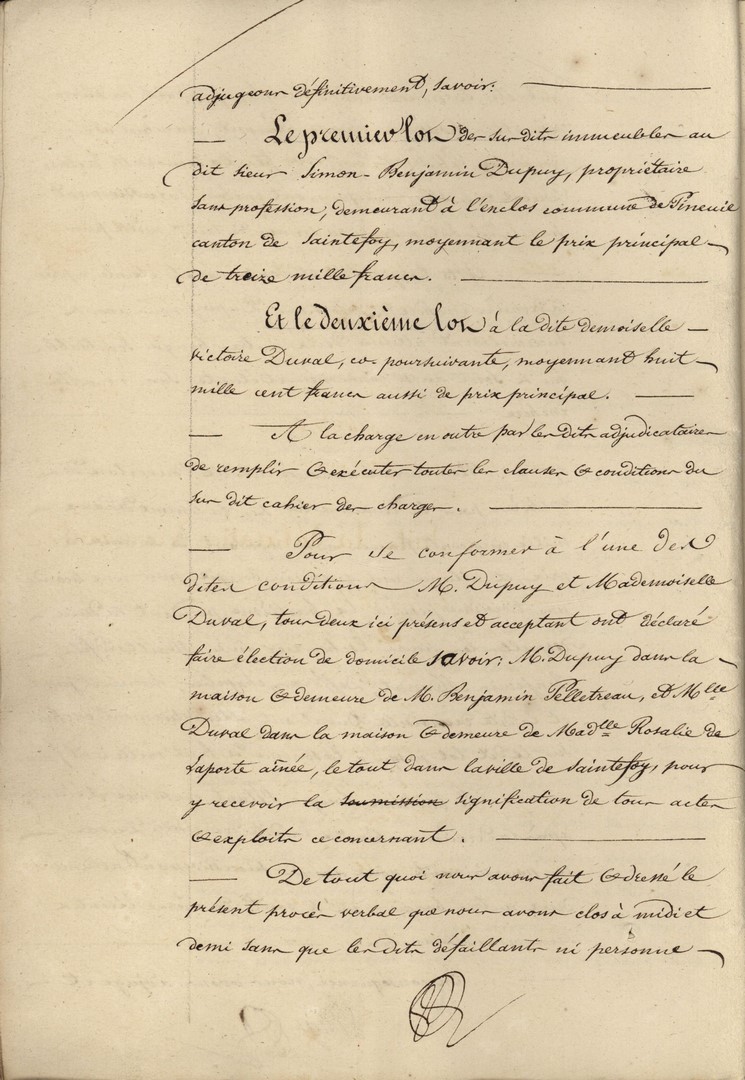 adjugeons définitivement, savoir:
Le premier lot des sus dits immeubles au
dit sieur Simon-Benjamin Dupuy, propriétaire
sans profession, demeurant à l'enclos commune de Pineuil
canton de Saintefoy, moyennant le prix principal
de treize mille francs.
Et le deuxième lot à la dite demoiselle
Victoire Duval, co-poursuivante, moyennant huit
mille cent francs aussi de prix principal.
A la charge en outre par les dits adjudicataires
de remplir & exécuter toutes les clauses & conditions du
sus dit cahier des charges.
Pour se conformer à l'une des
dites conditions M. Dupuy et Mademoiselle
Duval, tous deux ici présens et acceptant ont déclaré
faire élection de domicile savoir: M. Dupuy dans la
maison & demeure de M. Benjamin Pelletreau, et Mlle
Duval dans la maison & demeure de Madlle Rosalie de
Laporte aînée, le tout dans la ville de Saintefoy, pour
y recevoir la soumission signification de tous actes
& exploits ce concernant.
De tout quoi nous avons fait & dressé le
présent procès verbal que nous avons clos à midi et
demi sans que les dits défaillants ni personne